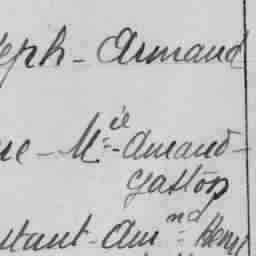 eph - Armand
ne - Mie - Amand -
Gaston
stant - Amnd - Henri